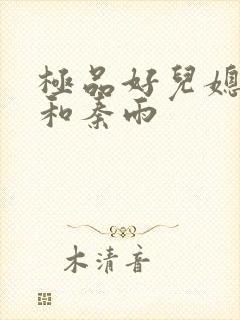 極品好兒媳
和秦雨
木清音